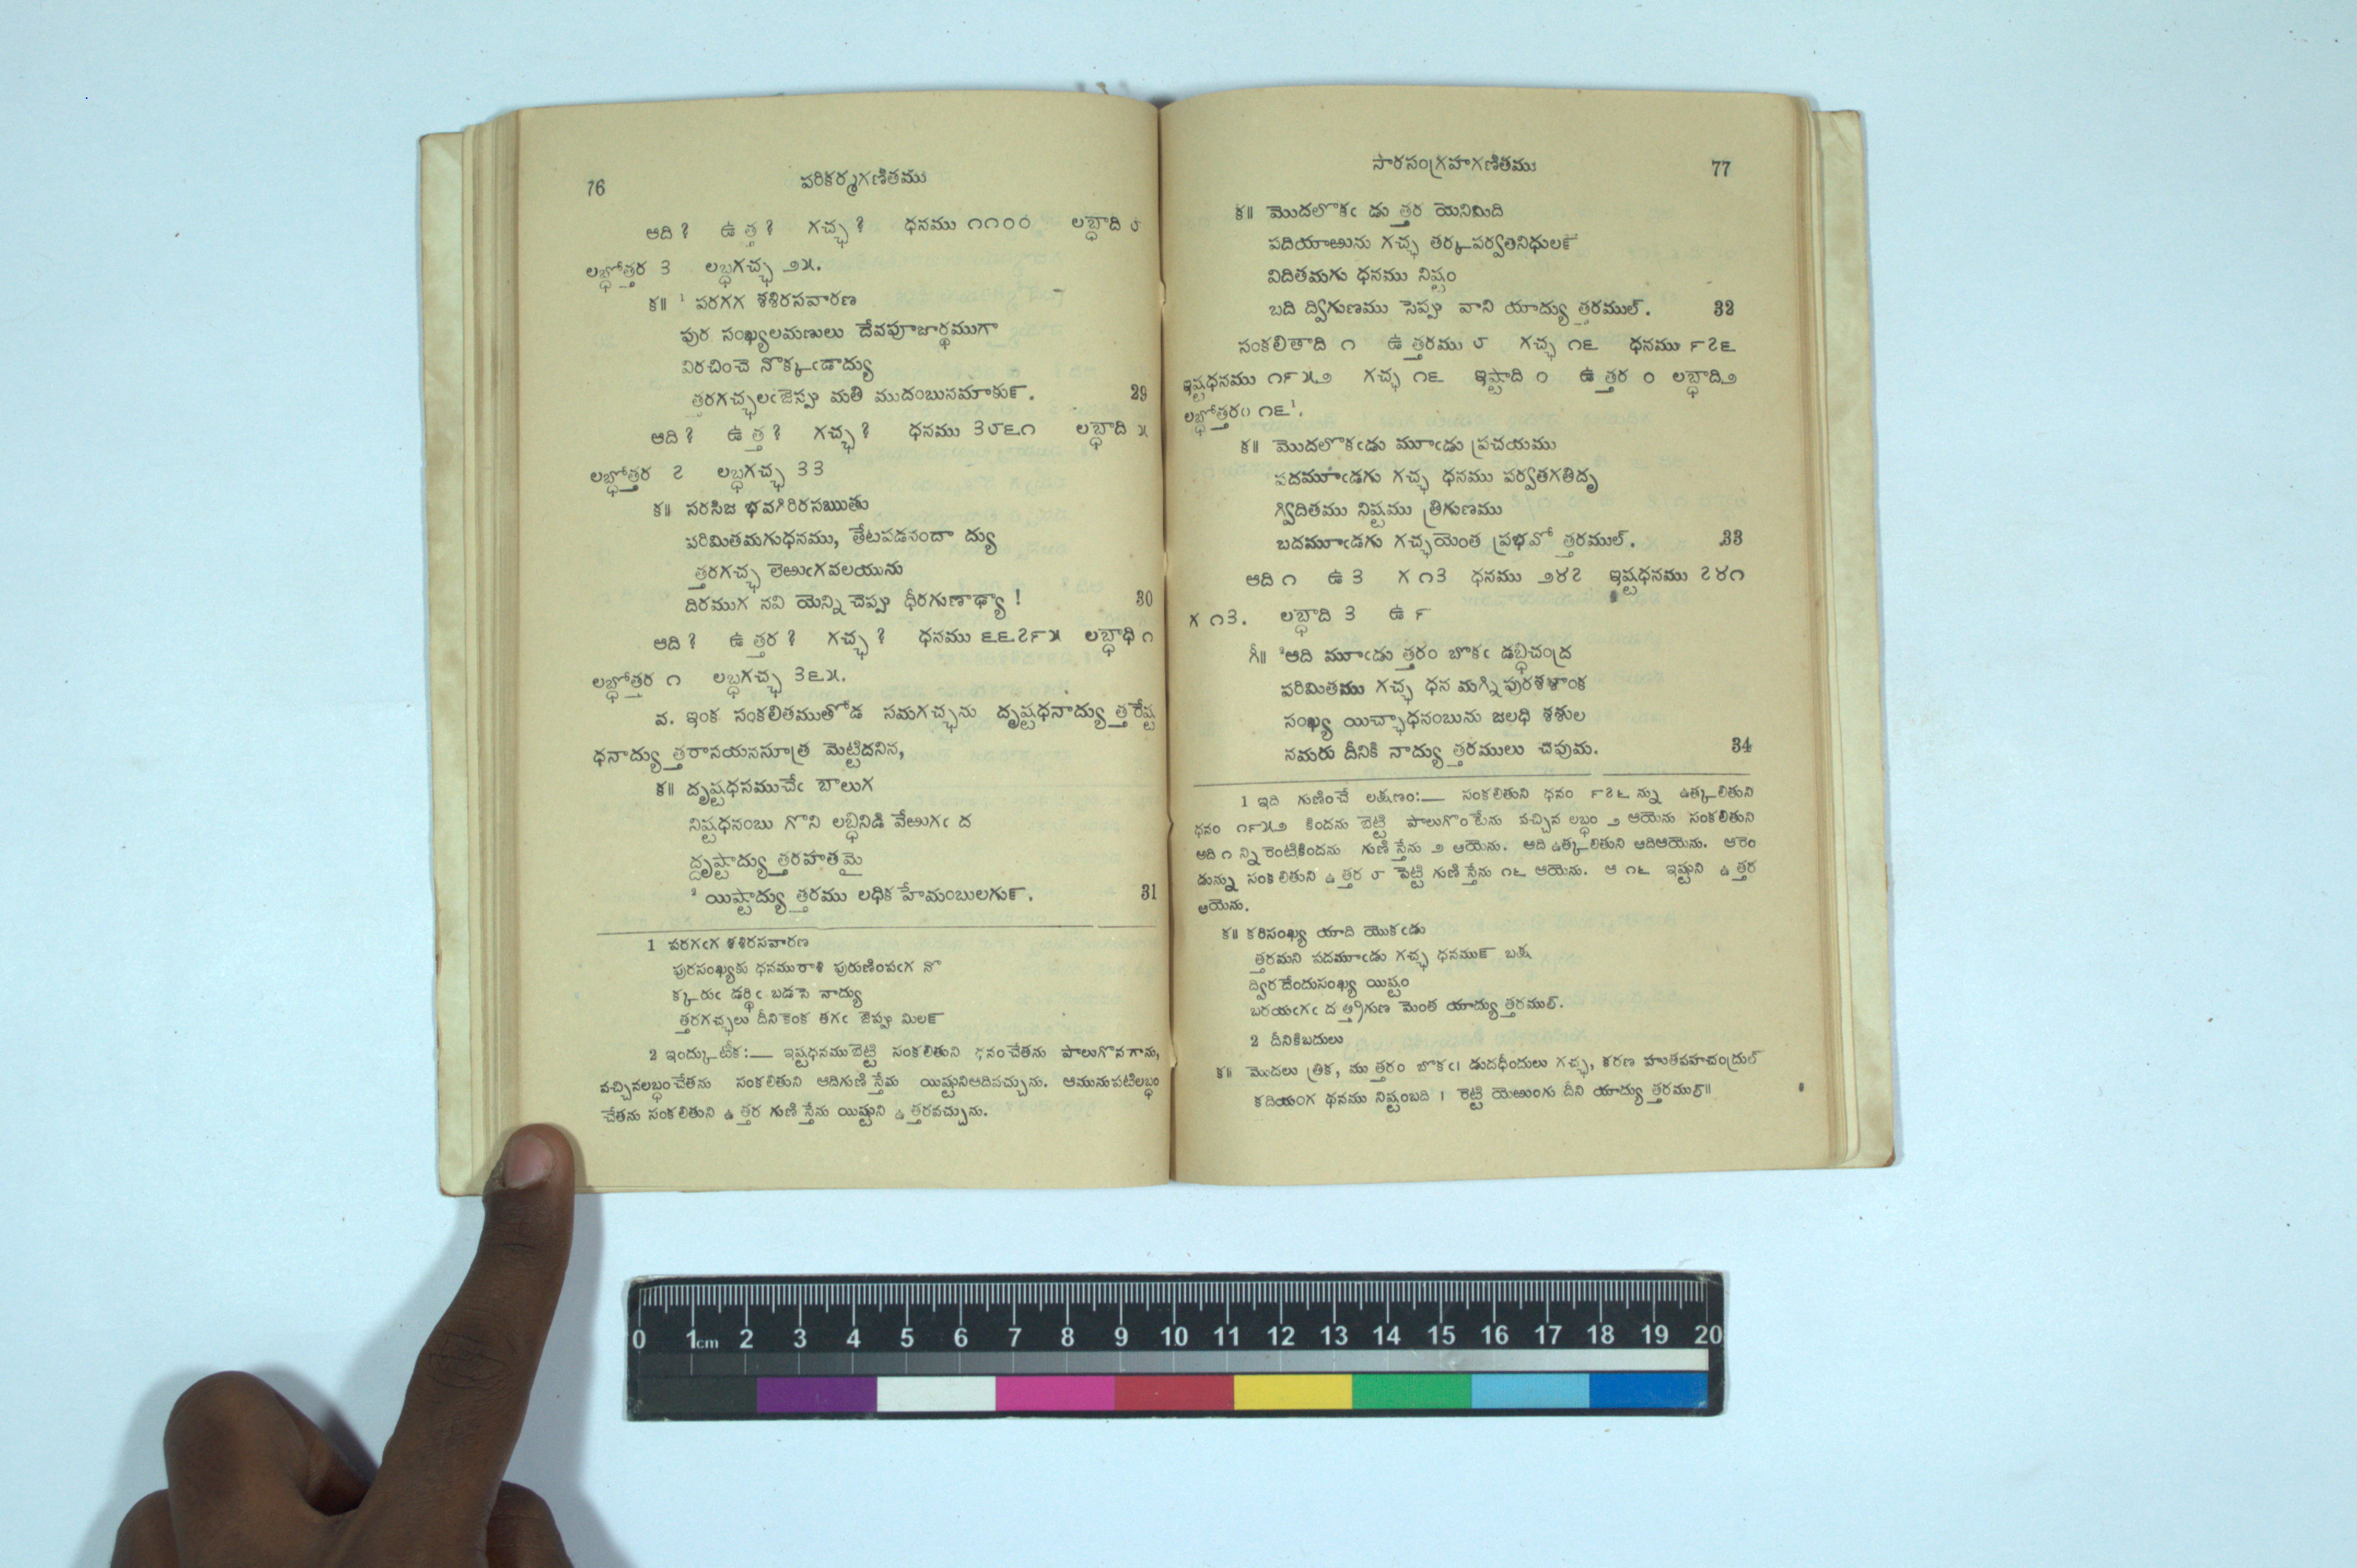 76
పరికర్మగణితము
ఆది ? ఉ త్త ? గచ్ఛ ? ధనము ౧౧౦౦ లబ్ధాది ౮
లబ్ధోత్తర ౩ లబ్ధగచ్ఛ ౨౫.
క॥ ¹ పరగగ శశిరసవారణ
పుర సంఖ్యలమణులు దేవపూజార్థముగా
విరచించె నొక్కఁడాద్యు
త్తరగచ్ఛలఁజెప్పు మతి ముదంబుసమాకు౯. 29
ఆది ? ఉ త్త ? గచ్ఛ ? ధనము ౩౮౬౧ లబ్ధాది ౫
లబ్ధోత్తర ౭ లబ్ధగచ్ఛ ౩౩
క॥ సరసిజ భవగిరిరసఋతు
పరిమితమగుధనము, తేటపడనందా ద్యు
త్తరగచ్ఛ లెఱుఁగవలయును
దిరముగ నవి యెన్ని చెప్పు ధీరగుణాఢ్యా ! 30
ఆది ? ఉ త్తర ? గచ్ఛ ? ధనము ౬౬౭౯౫ లబ్ధాధి ౧
లబ్ధోత్తర ౧ లబ్ధగచ్ఛ ౩౬౫.
వ. ఇంక సంకలితముతోడ సమగచ్ఛను దృష్టధనాద్యు త్తరేష్ట
ధనాద్యు త్తరానయనసూత్ర మెట్టిదనిన,
క॥ దృష్టధనముచేఁ బాలుగ
నిష్టధనంబు గొని లబ్ధినిడి వేఱుగఁ ద
ద్దృష్టాద్యు త్తరహతమై
² యిష్టాద్యు త్తరము లధిక హేమంబులగు౯. 31
1 పరగఁగ శశిరసవారణ
పురసంఖ్యకు ధనమురాశి పురుణింపఁగ నొ
క్కరుఁ డర్థిఁ బడసె నాద్యు
త్తరగచ్ఛలు దీనికెంక తగఁ జెప్పు మిల౯
2 ఇందుకు టీక:— ఇష్టధనముబెట్టి సంకలితుని ధనంచేతను పాలుగొనగాను,
వచ్చినలబ్ధంచేతను సంకలితుని ఆదిగుణి స్తేను యిష్టునిఆదివచ్చును. ఆమునుపటిలబ్ధం
చేతను సంకలితుని ఉ త్తర గుణి స్తేను యిష్టుని ఉ త్తరవచ్చును.
సారసంగ్రహగణితము
77
క॥ మొదలొకఁ డు త్తర యెనిమిది
పదియాఱును గచ్ఛ తర్కపర్వతనిధుల౯
విదితమగు ధనము నిష్టం
బది ద్విగుణము సెప్పు వాని యాద్యు త్తరముల్. 32
సంకలితాది ౧ ఉ త్తరము ౮ గచ్ఛ ౧౬ ధనము ౯౭౬
ఇష్టధనము ౧౯౫౨ గచ్ఛ ౧౬ ఇష్టాది ౦ ఉ త్తర ౦ లబ్ధాది౨
లబ్ధోత్తరం ౧౬¹.
క॥ మొదలొకఁడు మూఁడు ప్రచయము
పదమూఁడగు గచ్ఛ ధనము పర్వతగతిదృ
గ్విదితము నిష్టము త్రిగుణము
బదమూఁడగు గచ్ఛయెంత ప్రభవో త్తరముల్. 33
ఆది ౧ ఉ ౩ గ ౧౩ ధనము ౨౪౭ ఇష్టధనము ౭౪౧
గ ౧౩. లబ్ధాది ౩ ఉ ౯
గీ॥ ²ఆది మూఁడు త్తరం బొకఁ డబ్ధిచంద్ర
పరిమితము గచ్ఛ ధన మగ్నిపురశశాంక
సంఖ్య యిచ్ఛాధనంబును జలధి శశుల
నమరు దీనికి నాద్యు త్తరములు చెపుమ. 34
1 ఇది గుణించే లక్షణం:— సంకలితుని ధనం ౯౭౬ న్ను ఉత్కలితుని
ధనం ౧౯౫౨ కిందను బెట్టి పాలుగొంటేను వచ్చిన లబ్ధం ౨ ఆయెను సంకలితుని
ఆది ౧ న్ని రెంటికిందను గుణి స్తేను ౨ ఆయెను. అది ఉత్కలితుని ఆదిఆయెను. ఆరెం
డున్ను సంకలితుని ఉ త్తర ౮ పెట్టి గుణి స్తేను ౧౬ ఆయెను. ఆ ౧౬ ఇష్టుని ఉ త్తర
ఆయెను.
క॥ కరిసంఖ్య యాది యొకఁడు
త్తరమని పదమూఁడు గచ్ఛ ధనము౯ బక్ష
ద్విర దేందుసంఖ్య యిష్టం
బరయఁగఁ ద త్త్రిగుణ మెంత యాద్యు త్తరముల్.
2 దీనికిబదులు
క॥ మొదలు త్రిక, ము త్తరం బొకఁ। డుదధీందులు గచ్ఛ, కరణ హుతవహచంద్రుల్
కదియంగ ధనము నిష్టంబది । రెట్టి యెఱుంగు దీని యాద్యు త్తరముల్॥